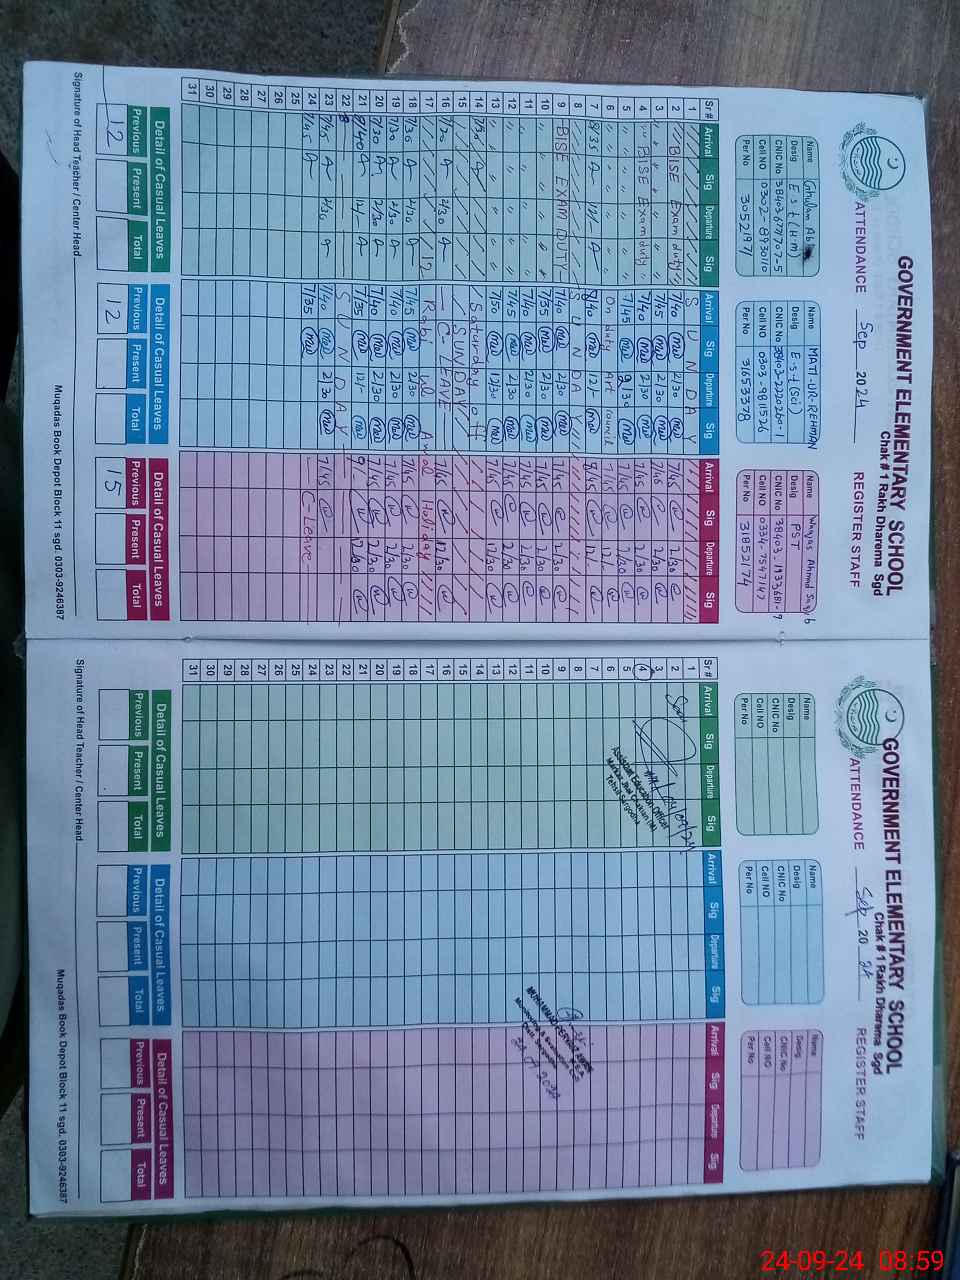 GOVERNMENT ELEMENTARY SCHOOL
Chak # 1 Rakh Dharema Sgd
ATTENDANCE Sep 2024 REGISTER STAFF
Name Ghulam
Desig E s t (H.m)
CNIC No
Cell NO 0302-8930110
Per No 3052971
Name MATI-UR-REHMAN
Desig E.s.t (Sci)
CNIC No
Cell NO 0303-9811526
Per No 31653378
Name Waqas Ahmd
Desig PST
CNIC No
Cell NO 0334-7547147
Per No 31852174
Sr # Arrival Sig Departure Sig Arrival Sig Departure Sig Arrival Sig Departure Sig
1 SUNDAY
2 BISE Exam duty 7/40 2/30 7/45 2/30
3 7/45 2/30 7/45 2/30
4 BISE Exam duty 7/40 2/30 7/45 2/30
5 7/45 2/30 7/45 2/30
6 On duty Art 7/45 12/-
7 8/35 12/- 8/40 12/- 8/45 12/-
8 SUNDAY
9 BISE EXAM DUTY 7/40 2/30 7/45 2/30
10 7/35 2/30 7/45 2/30
11 7/40 12/30 7/45 2/30
12 7/45 2/30 7/45 2/30
13 7/50 12/30 7/45 12/30
14 7/30 Saturday off
15 SUNDAY
16 7/20 2/30 C-LEAVE 7/45 12/30
17 12 Rabi ul Awal Holiday
18 7/30 2/30 7/45 2/30 7/45 2/30
19 7/30 2/30 7/40 2/30 7/45 2/30
20 7/30 2/30 7/40 2/30 7/45 2/30
21 7/40 12/- 7/35 12/- 12/30
22 SUNDAY
23 7/45 2/30 7/40 2/30 7/45
24 7/45 7/35 C-Leave
25
26
27
28
29
30
31
Detail of Casual Leaves Detail of Casual Leaves Detail of Casual Leaves
Previous Present Total Previous Present Total Previous Present Total
12 12 15
Signature of Head Teacher / Center Head
Muqadas Book Depot Block 11 sgd. 0303-9246387
GOVERNMENT ELEMENTARY SCHOOL
Chak # 1 Rakh Dharema Sgd
ATTENDANCE Sep 2024 REGISTER STAFF
Name
Desig
CNIC No
Cell NO
Per No
Name
Desig
CNIC No
Cell NO
Per No
Name
Desig
CNIC No
Cell NO
Per No
Sr # Arrival Sig Departure Sig Arrival Sig Departure Sig Arrival Sig Departure Sig
1
2
3
4
5
6
7
8
9
10
11
12
13
14
15
16
17
18
19
20
21
22
23
24
25
26
27
28
29
30
31
Assistant Education Officer
Tehsil Sargodha
MUHAMMAD PERVAIZ
Monitoring & Evaluation
Distt. Sargodha
Detail of Casual Leaves Detail of Casual Leaves Detail of Casual Leaves
Previous Present Total Previous Present Total Previous Present Total
Signature of Head Teacher / Center Head
Muqadas Book Depot Block 11 sgd. 0303-9246387
24-09-24 08:59